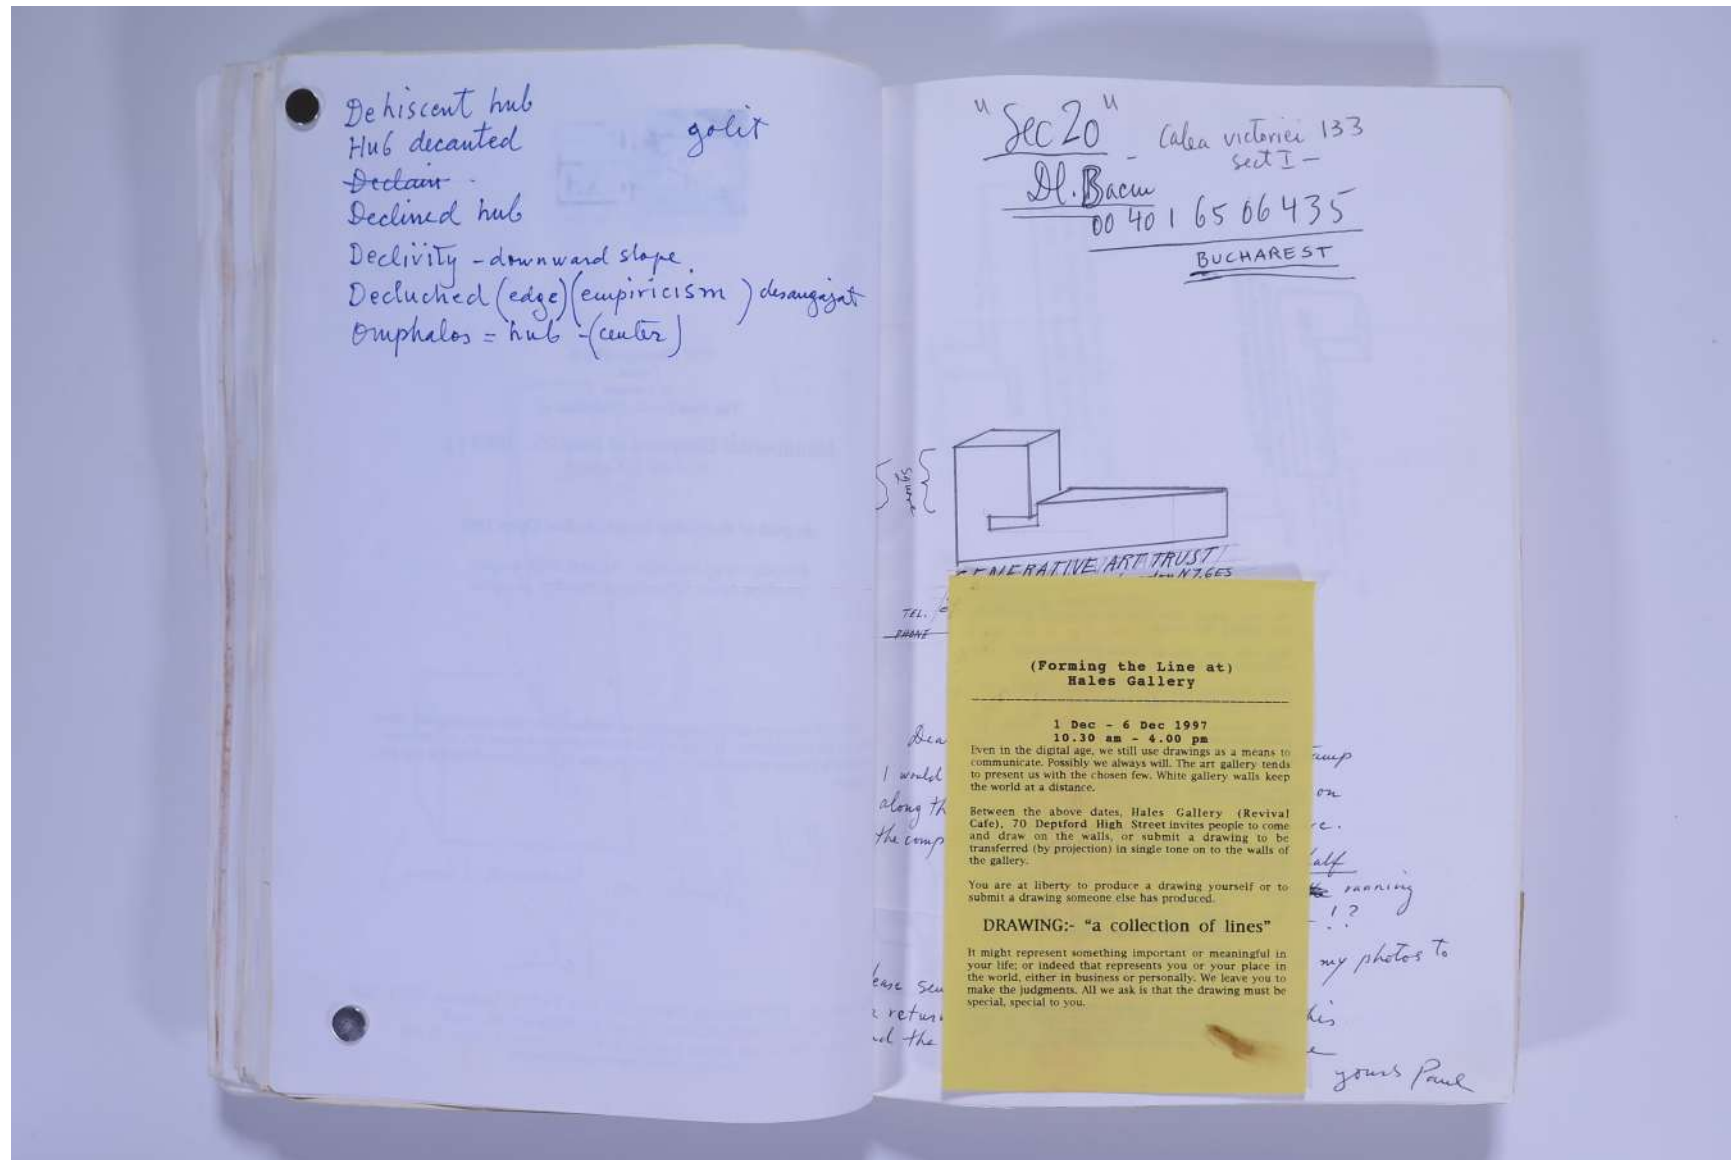 Dehiscent hub
Hub decanted
golit
Declain
Declined hub
Declivity - downward slope
Decluched (edge) (empiricism) desangajat
Omphalos = hub - (center)
"Sec 20"
- Calea victoriei 133
sect I -
Dl. Bacu
00 40 1 65 06 435
BUCHAREST
Square
GENERATIVE ART TRUST
N7.6ES
TEL.
PHONE
(Forming the Line at)
Hales Gallery
1 Dec - 6 Dec 1997
10.30 am - 4.00 pm
Even in the digital age, we still use drawings as a means to
communicate. Possibly we always will. The art gallery tends
to present us with the chosen few. White gallery walls keep
the world at a distance.
Between the above dates, Hales Gallery (Revival
Cafe), 70 Deptford High Street invites people to come
and draw on the walls, or submit a drawing to be
transferred (by projection) in single tone on to the walls of
the gallery.
You are at liberty to produce a drawing yourself or to
submit a drawing someone else has produced.
DRAWING:- "a collection of lines"
It might represent something important or meaningful in
your life; or indeed that represents you or your place in
the world, either in business or personally. We leave you to
make the judgments. All we ask is that the drawing must be
special, special to you.
Dea
I would
on
along th
the comp
alf
running
!?
my photos to
ease sen
retur
his
d the
yours Paul